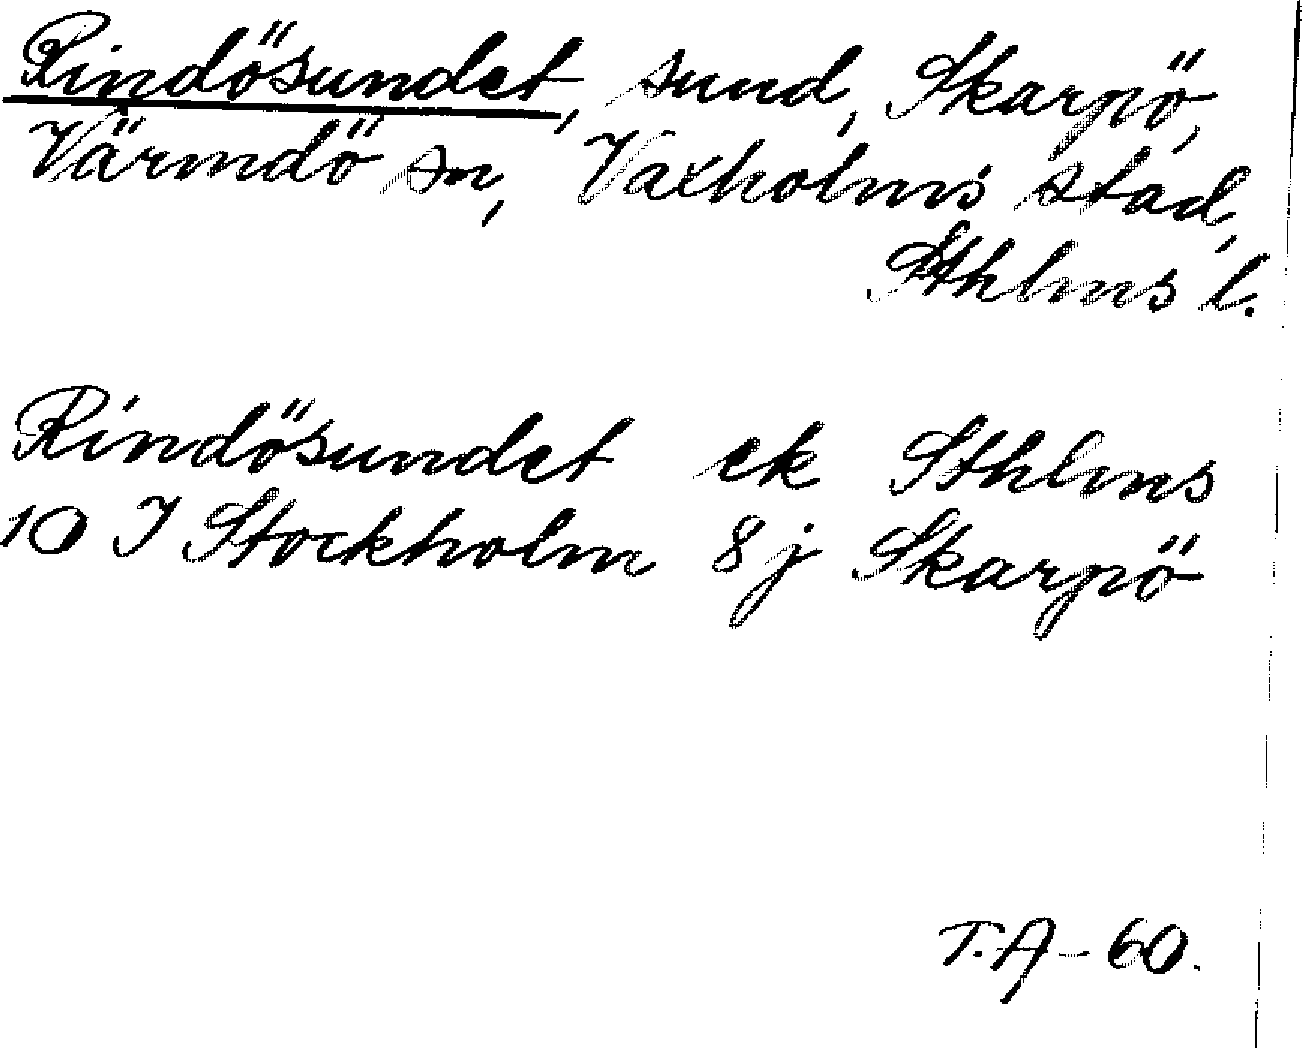 Rindösundet, sund, Skarpö,
Värmdö sn, Vaxholms stad,
Sthlms l.
Rindösundet ek Sthlms
10 I Stockholm 8j Skarpö
T.A-60.